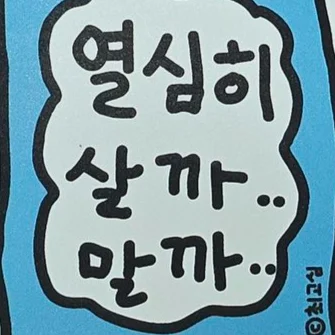 열심히
살까..
말까..
©최고심